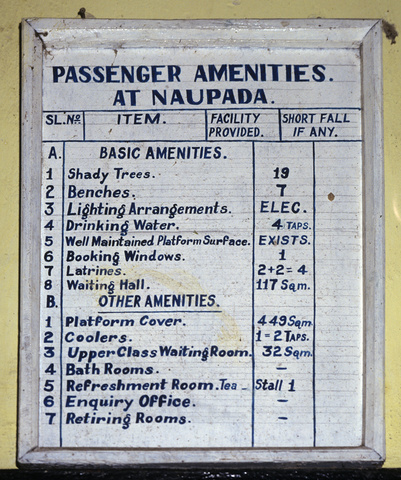 PASSENGER AMENITIES.
AT NAUPADA.
SL.No ITEM. FACILITY PROVIDED. SHORT FALL IF ANY.
A. BASIC AMENITIES.
1 Shady Trees. 19
2 Benches. 7
3 Lighting Arrangements. ELEC.
4 Drinking Water. 4 TAPS.
5 Well Maintained Platform Surface. EXISTS.
6 Booking Windows. 1
7 Latrines. 2+2=4
8 Waiting Hall. 117 Sqm.
B. OTHER AMENITIES.
1 Platform Cover. 449 Sqm
2 Coolers. 1=2 TAPS.
3 Upper Class Waiting Room. 32 Sqm.
4 Bath Rooms. –
5 Refreshment Room. Tea - Stall 1
6 Enquiry Office. –
7 Retiring Rooms. –